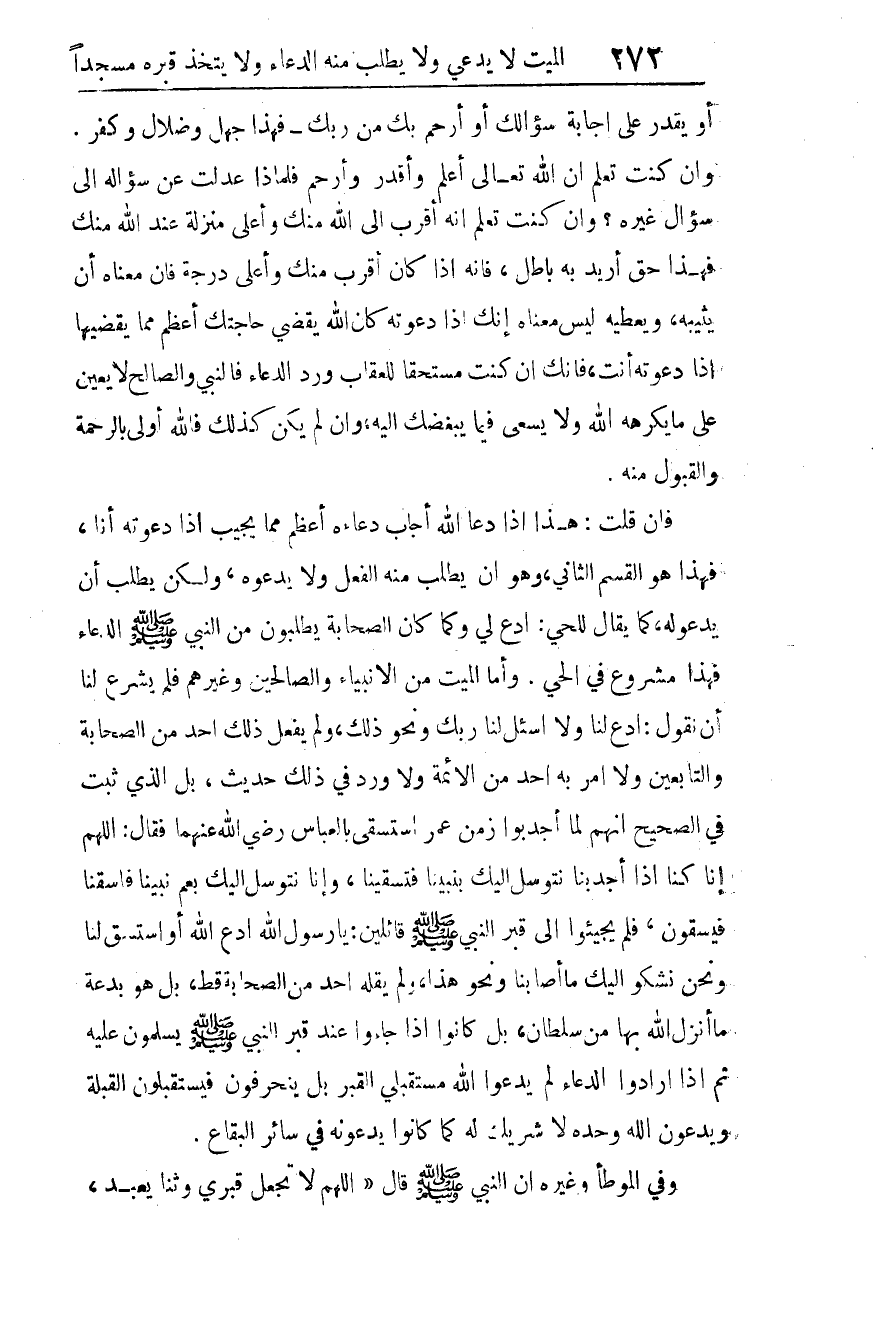 ٢٧٣ الميت لا يدعي ولا يطلب منه الدعاء ولا يتخذ قبره مسجداً
أو يقدر على اجابة سؤالك أو أرحم بك من ربك ــ فهذا جهل وضلال وكفر .
وان كنت تعلم ان الله تعـالى أعلم وأقدر وأرحم فلماذا عدلت عن سؤاله الى
سؤال غيره ؟ وان كنت تعلم انه أقرب الى الله منك وأعلى منزلة عند الله منك
فهـذا حق أريد به باطل ، فانه اذا كان أقرب منك وأعلى درجة فان معناه أن
يثيبه، ويعطيه ليس معناه إنك اذا دعوته كان الله يقضي حاجتك أعظم مما يقضيها
اذا دعوته أنت، فانك ان كنت مستحقا للعقاب ورد الدعاء فالنبي والصالح لا يعين
على مايكرهه الله ولا يسعى فيما يبغضك اليه، وان لم يكن كذلك فالله أولى بالرحمة
والقبول منه .
فان قلت : هـذا اذا دعا الله أجاب دعاءه أعظم مما يجيب اذا دعوته أنا ،
فهذا هو القسم الثاني، وهو ان يطلب منه الفعل ولا يدعوه ، ولـكن يطلب أن
يدعوله، كما يقال للحي : ادع لي وكما كان الصحابة يطلبون من النبي ﷺ الدعاء
فهذا مشروع في الحي . وأما الميت من الانبياء والصالحين وغيرهم فلم يشرع لنا
أن نقول : ادع لنا ولا اسئل لنا ربك ونحو ذلك، ولم يفعل ذلك احد من الصحابة
والتابعين ولا امر به احد من الائمة ولا ورد في ذلك حديث ، بل الذي ثبت
في الصحيح انهم لما أجدبوا زمن عمر استسقى بالعباس رضي الله عنهما فقال : اللهم
إنا كنا اذا أجدبنا نتوسل اليك بنبينا فتسقينا ، وإنا نتوسل اليك بعم نبينا فاسقنا
فيسقون ، فلم يجيئوا الى قبر النبي ﷺ قائلين : يارسول الله ادع الله أو استسق لنا
ونحن نشكو اليك ماأصابنا ونحو هذا، ولم يقله احد من الصحابة قط، بل هو بدعة
ماأنزل الله بها من سلطان، بل كانوا اذا جاءوا عند قبر النبي ﷺ يسلمون عليه
ثم اذا ارادوا الدعاء لم يدعوا الله مستقبلي القبر بل ينحرفون فيستقبلون القبلة
ويدعون الله وحده لا شريك له كما كانوا يدعونه في سائر البقاع .
وفي الموطأ وغيره ان النبي ﷺ قال « اللهم لا تجعل قبري وثنا يعبـد ،